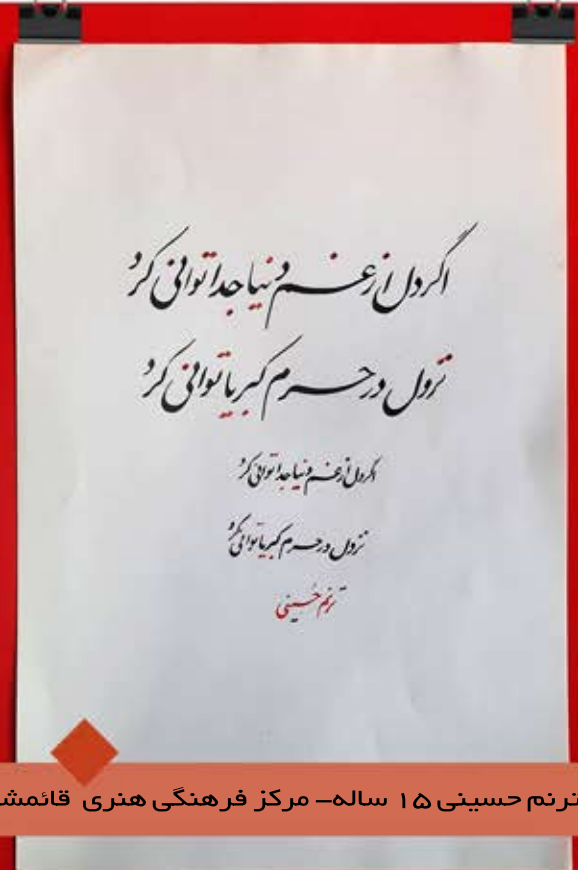 اگر دل از غم دنیا جدا توانی کرد
نزول در حرم کبریا توانی کرد
اگر دل از غم دنیا جدا توانی کرد
نزول در حرم کبریا توانی کرد
ترنم حسینی
ترنم حسینی ۱۵ ساله- مرکز فرهنگی هنری قائمش